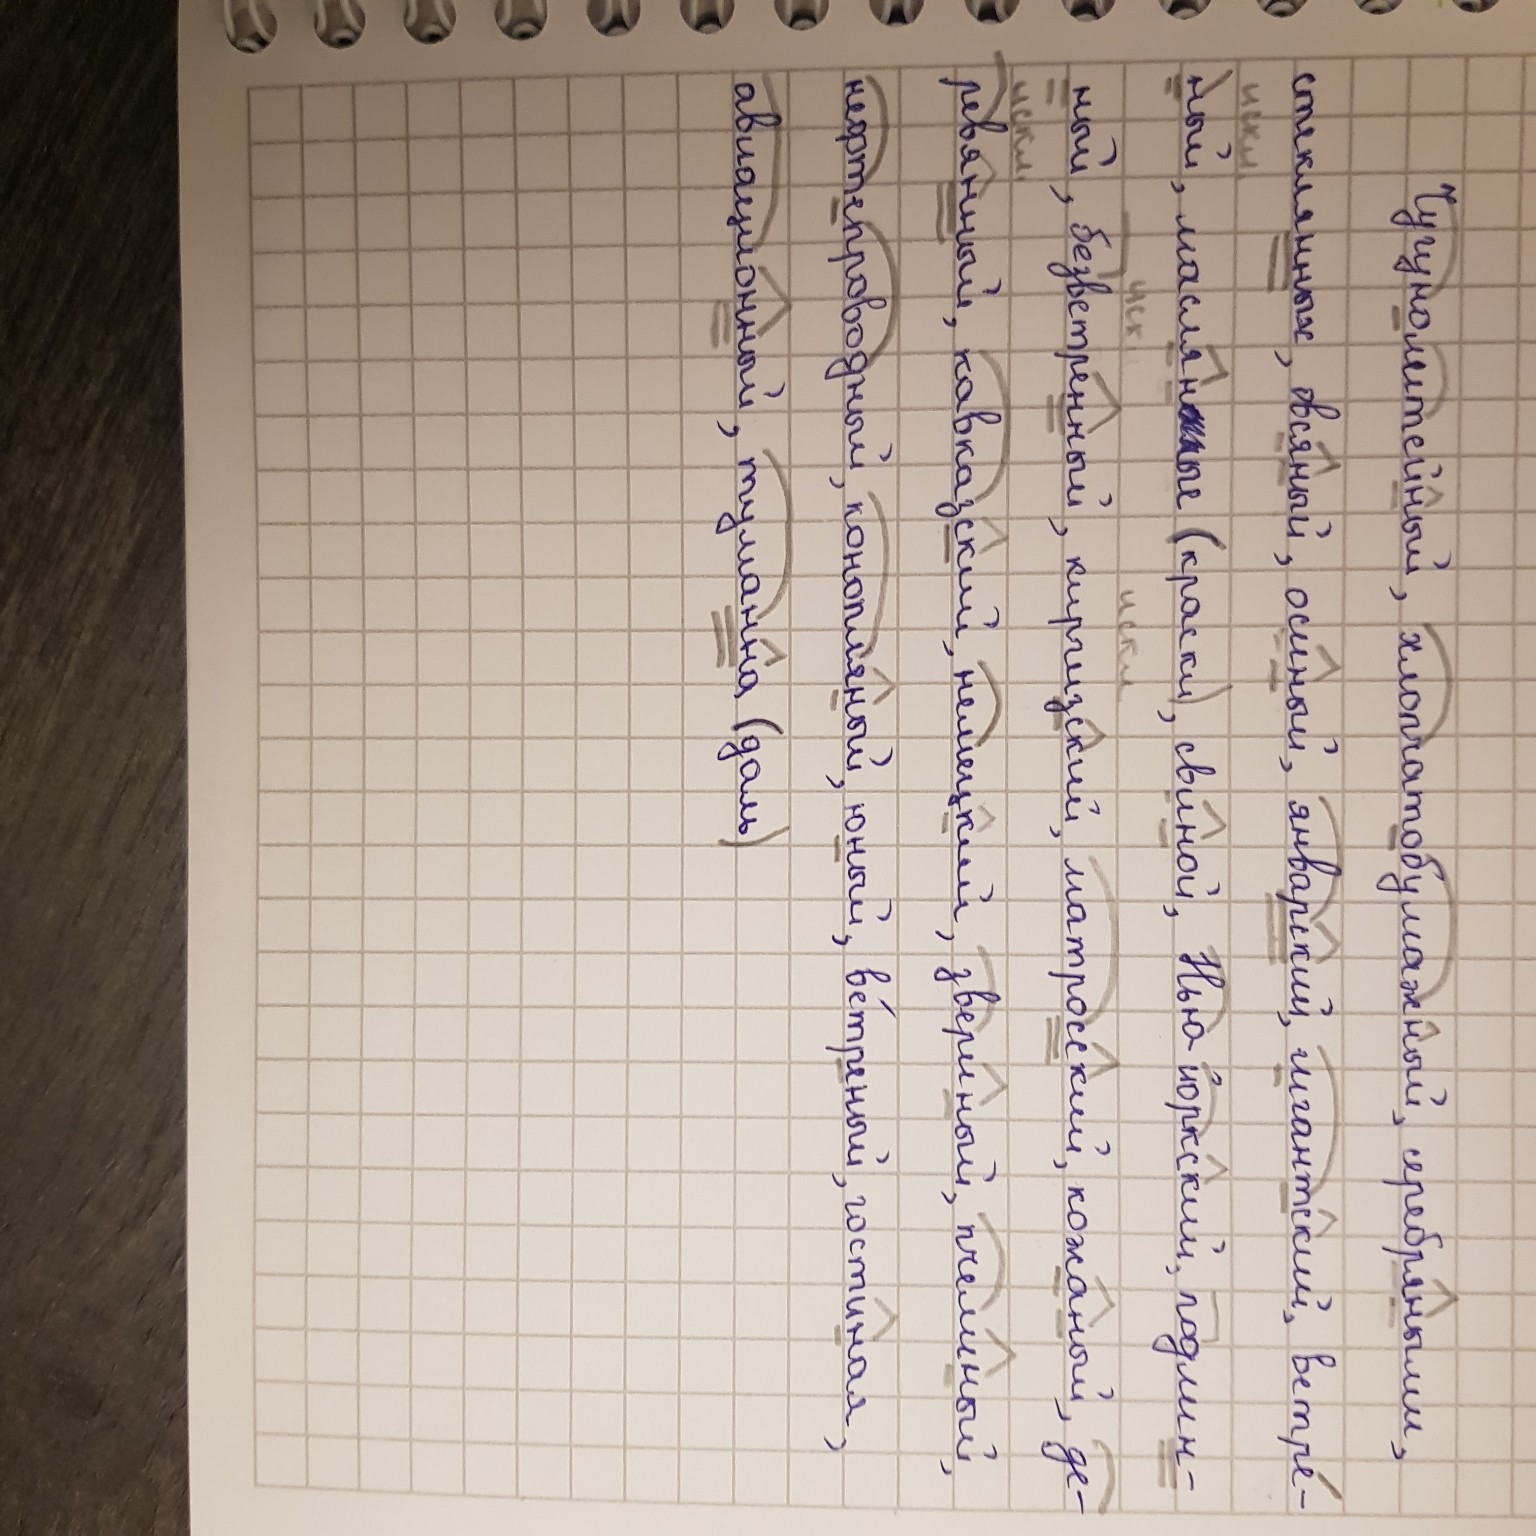 Чугунолитейный, хлопчатобумажный, серебряными,
стеклянных, овсяный, осиный, январский, гигантский, ветре-
искл.
ный, масляные (краски), свиной, Нью-йоркский, подлин-
искл искл
ный, безветренный, киргизский, матросский, кожаный, де-
искл.
ревянный, кавказский, немецкий, звериный, пчелиный,
нефтепроводный, конопляный, юный, ветреный, гостиная,
авиационный, туманна (даль)